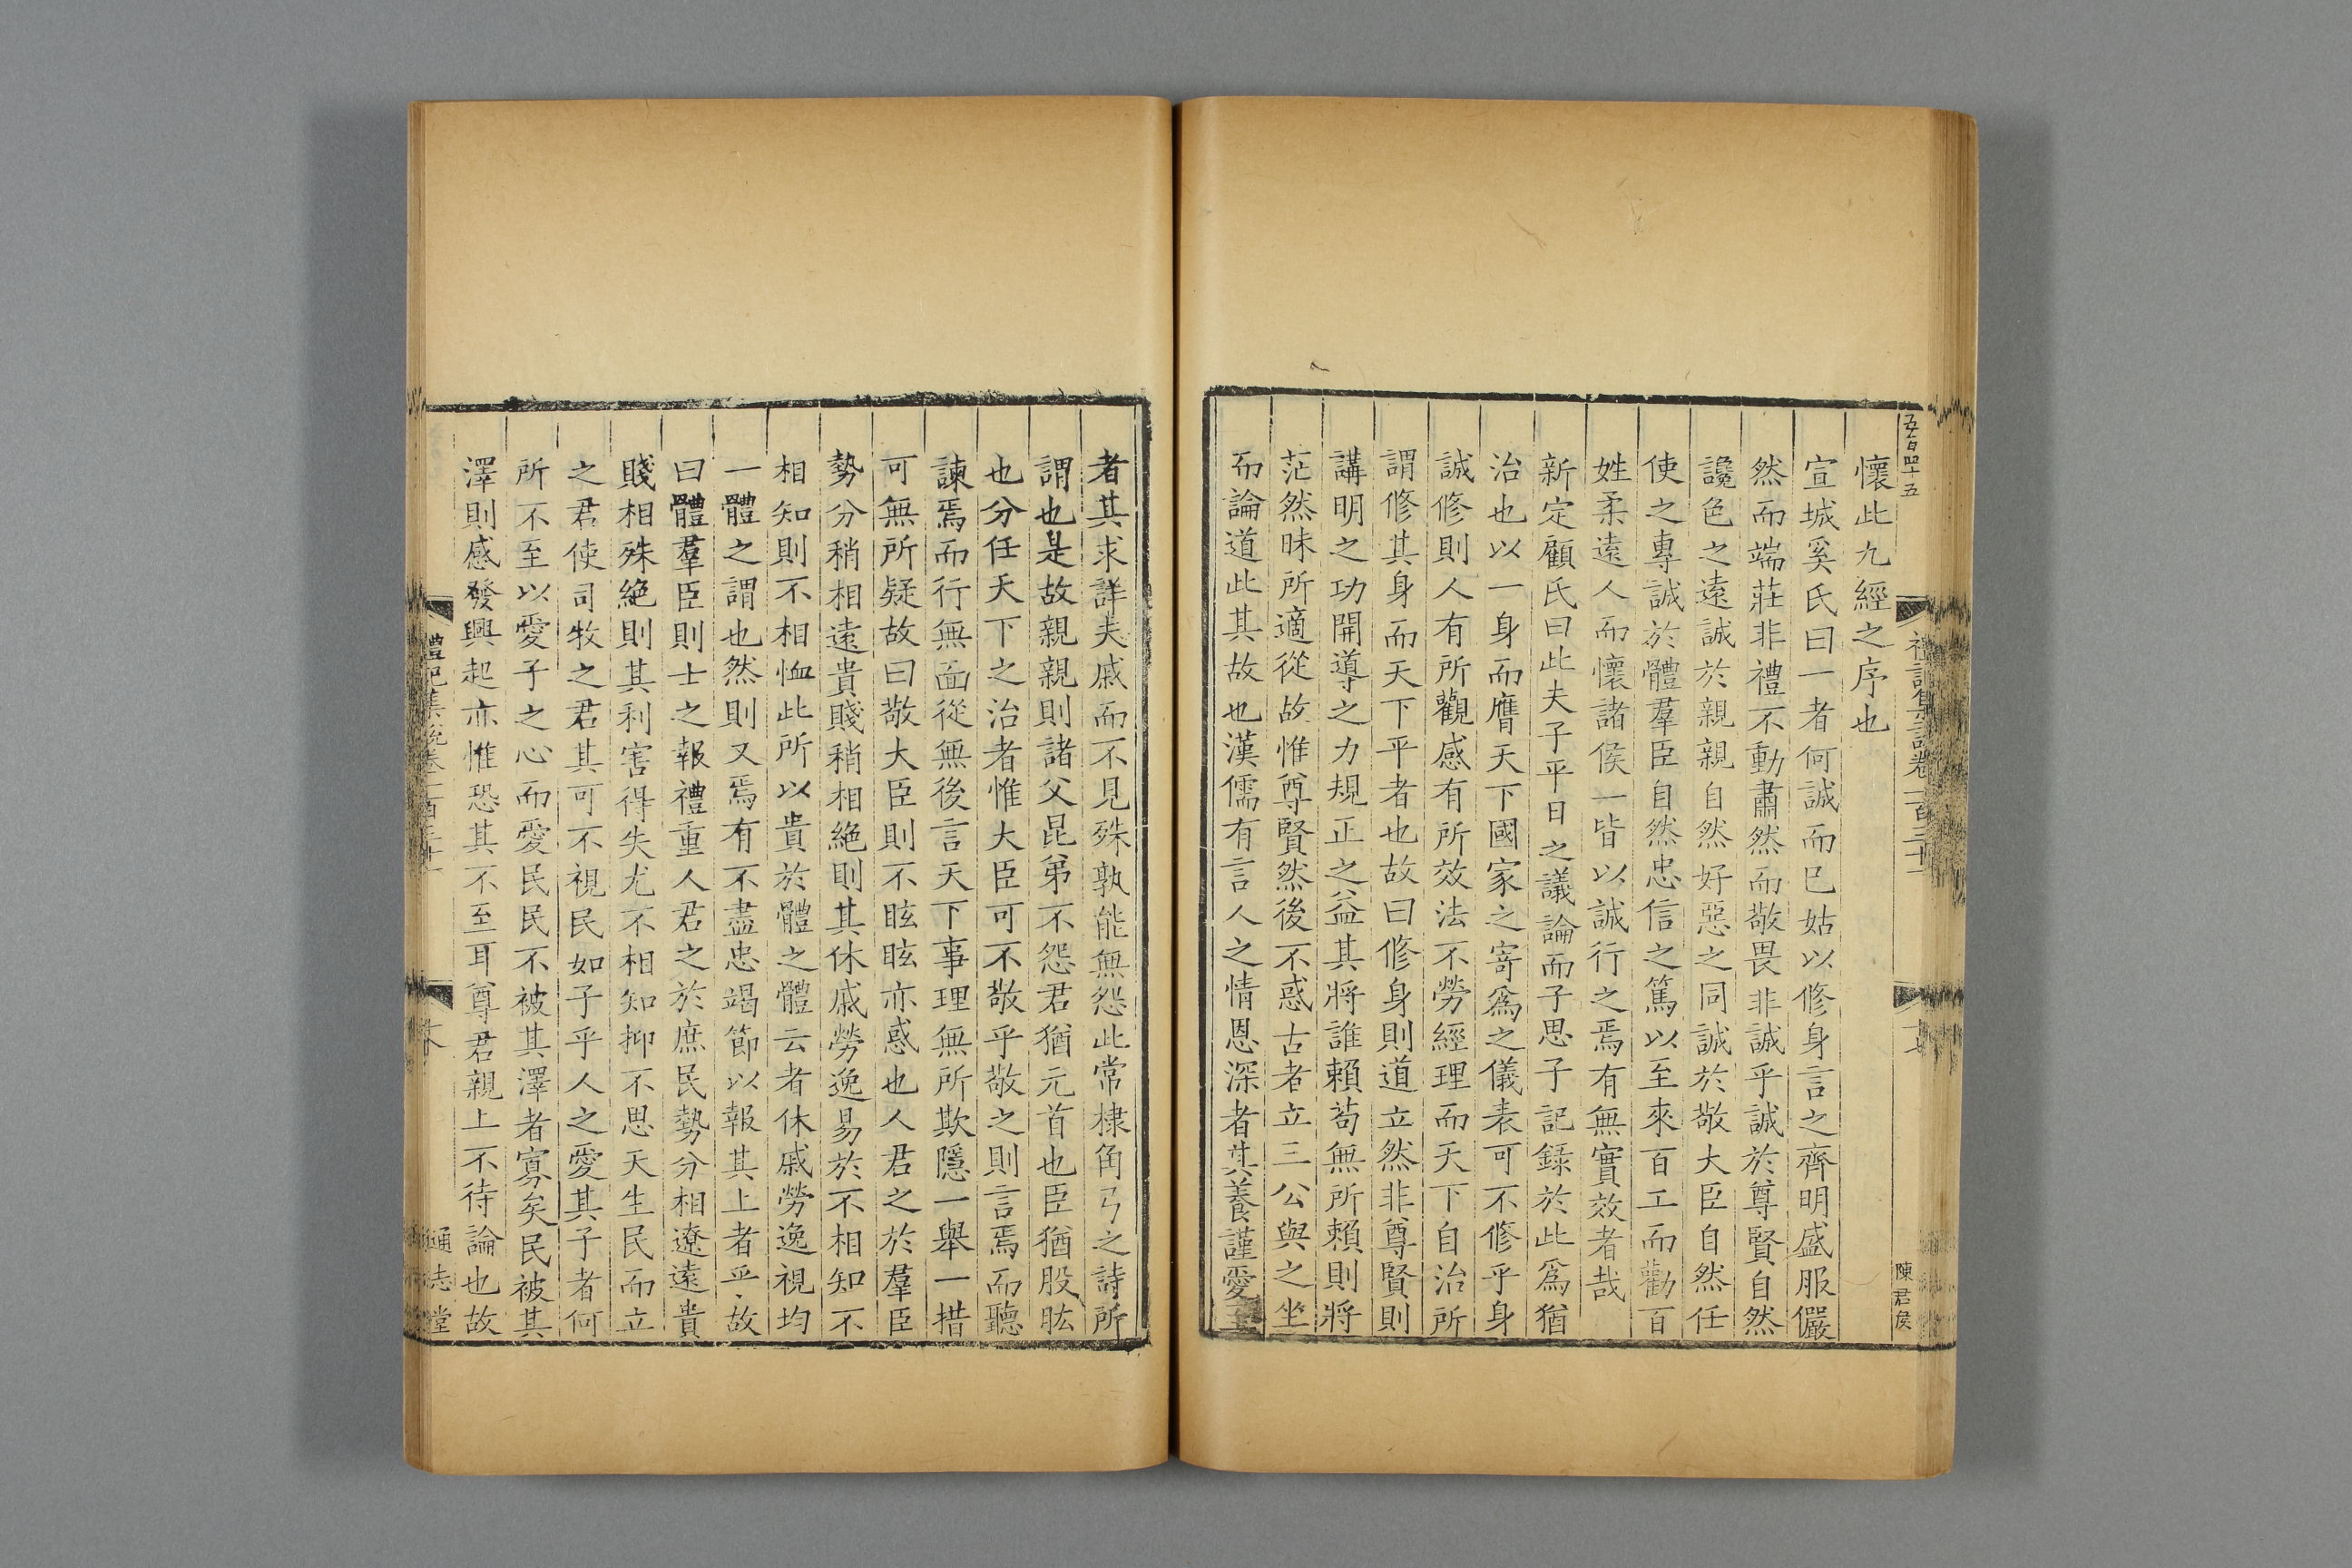 五百四十五
禮記集說卷一百三十一
十七
陳君侯
懷此九經之序也
宣城奚氏曰一者何誠而已姑以修身言之齊明盛服儼
然而端莊非禮不動肅然而敬畏非誠乎誠於尊賢自然
讒色之遠誠於親親自然好惡之同誠於敬大臣自然任
使之專誠於體羣臣自然忠信之篤以至來百工而勸百
姓柔遠人而懷諸侯一皆以誠行之焉有無實效者哉
新定顧氏曰此夫子平日之議論而子思子記錄於此爲猶
治也以一身而膺天下國家之寄爲之儀表可不修乎身
誠修則人有所觀感有所效法不勞經理而天下自治所
謂修其身而天下平者也故曰修身則道立然非尊賢則
講明之功開導之力規正之益其將誰賴茍無所賴則將
茫然昧所適從故惟尊賢然後不惑古者立三公與之坐
而論道此其故也漢儒有言人之情恩深者其養謹愛至
者其求詳夫戚而不見殊孰能無怨此常棣角弓之詩所
謂也是故親親則諸父昆弟不怨君猶元首也臣猶股肱
也分任天下之治者惟大臣可不敬乎敬之則言焉而聽
諫焉而行無面從無後言天下事理無所欺隱一舉一措
可無所疑故曰敬大臣則不眩眩亦惑也人君之於羣臣
勢分稍相遠貴賤稍相絶則其休戚勞逸易於不相知不
相知則不相恤此所以貴於體之體云者休戚勞逸視均
一體之謂也然則又焉有不盡忠竭節以報其上者乎故
曰體羣臣則士之報禮重人君之於庶民勢分相遼遠貴
賤相殊絶則其利害得失尤不相知抑不思天生民而立
之君使司牧之君其可不視民如子乎人之愛其子者何
所不至以愛子之心而愛民民不被其澤者寡矣民被其
澤則感發興起亦惟恐其不至耳尊君親上不待論也故
禮記集說卷一百三十一
通志堂